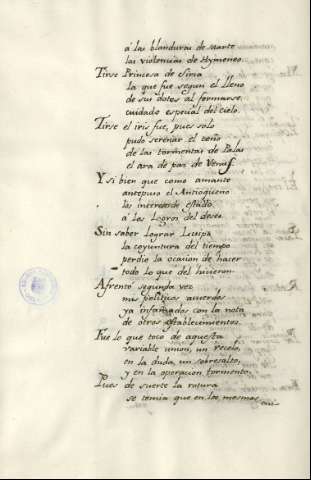 á las blanduras de Marte
las violencias de Hymeneo.
Tirse Princesa de Siria
la que fue segun el lleno
de sus dotes al formarse,
cuidado especial del cielo.
Tirse el iris fue, pues sola
pudo serenar el ceño
de las tormentas de Palas
el ara de paz de Venus.
Y si bien que como amante
antepuso el Antioqueno
los intereses de estado
á los logros del deseo.
Sin saber lograr
la coyuntura del tiempo
perdio la ocasion de hacer
todo lo que del hicieron.
Afrentó segunda vez
mis politicos acuerdos
ya infamados con la nota
de otros establecimientos.
Fue lo que toco de aquesta
variable union, un recelo,
en la duda, un sobresalto,
y en la operacion tormento.
Pues de suerte la rotura
se temia que en los mesmos